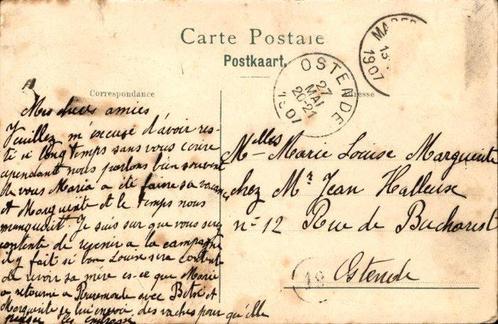 Carte Postale
Postkaart.
Correspondance
Adresse
OSTENDE
27
MAI
20-21
1907
1907
Mes chères amies
Veuillez m'excusé d'avoir res-
té si longtemps sans vous écrire
cependant nous parlons bien souvent
de vous Maria a été faire sa
et Marguerite et le temps nous
manquait. Je suis sur que vous serez
contente de revenir a la campagne
il y fait si bon Louise sera contente
de revoir sa mère es-ce que Marie
a retourné a Ruremonde avec et
Marguerite des vaches pour qu'elle
Melles Marie Louise Marguerite
chez Mr Jean Halleux
no 12 Rue de Bucharest
Ostende